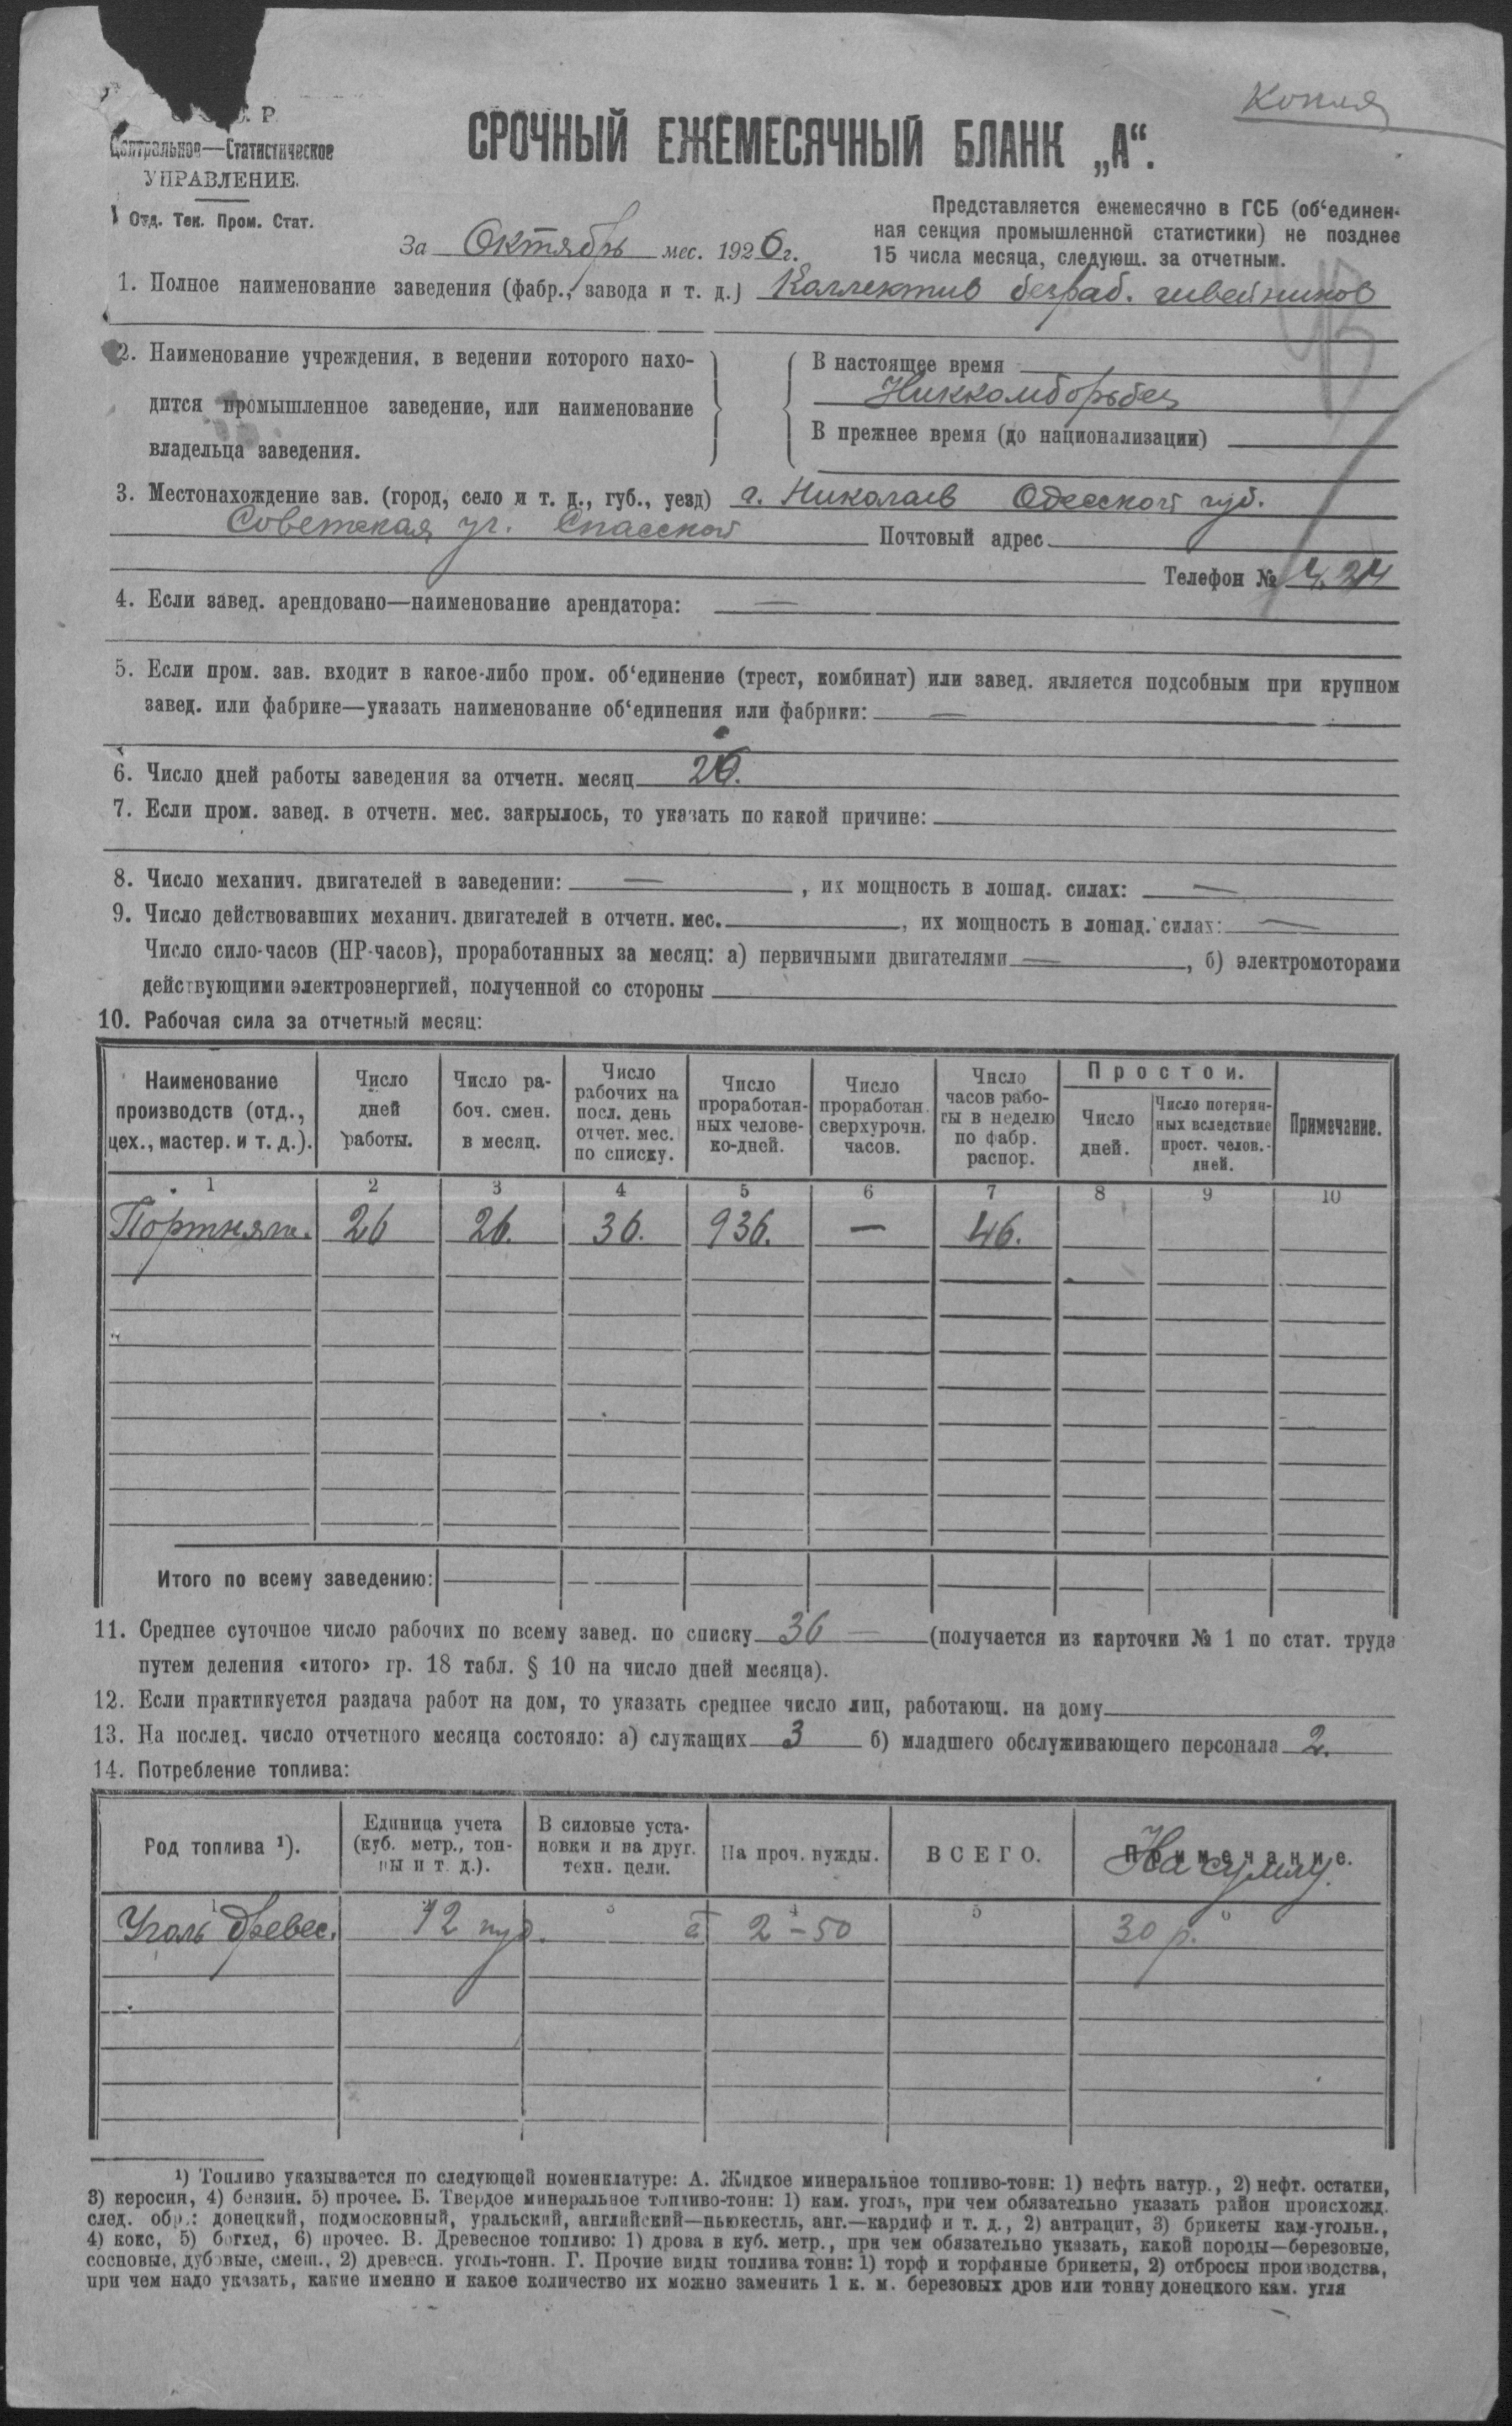 Копия
Р.
Центральное—Статистическое
УПРАВЛЕНИЕ.
Отд. Тек. Пром. Стат.
СРОЧНЫЙ ЕЖЕМЕСЯЧНЫЙ БЛАНК „А“.
Представляется ежемесячно в ГСБ (об‘единен-
ная секция промышленной статистики) не позднее
15 числа месяца, следующ. за отчетным.
За Октябрь мес. 1926 г.
1. Полное наименование заведения (фабр., завода и т. д.) Коллектив безраб. швейников
2. Наименование учреждения, в ведении которого нахо-
дится промышленное заведение, или наименование
владельца заведения.
В настоящее время
Никкомборьбез
В прежнее время (до национализации)
3. Местонахождение зав. (город, село и т. д., губ., уезд) г. Николаев Одесской губ.
Советская уг. Спасской Почтовый адрес
Телефон № 4.24
4. Если завед. арендовано—наименование арендатора: —
5. Если пром. зав. входит в какое-либо пром. об‘единение (трест, комбинат) или завед. является подсобным при крупном
завед. или фабрике—указать наименование об‘единения или фабрики: —
6. Число дней работы заведения за отчетн. месяц 26.
7. Если пром. завед. в отчетн. мес. закрылось, то указать по какой причине:
8. Число механич. двигателей в заведении: — , их мощность в лошад. силах: —
9. Число действовавших механич. двигателей в отчетн. мес. , их мощность в лошад. силах: —
Число сило-часов (НР-часов), проработанных за месяц: а) первичными двигателями — , б) электромоторами
действующими электроэнергией, полученной со стороны
10. Рабочая сила за отчетный месяц:
Наименование
производств (отд.,
цех., мастер. и т. д.).
Число
дней
работы.
Число ра-
боч. смен.
в месяц.
Число
рабочих на
посл. день
отчет. мес.
по списку.
Число
проработан-
ных челове-
ко-дней.
Число
проработан.
сверхурочн.
часов.
Число
часов рабо-
ты в неделю
по фабр.
распор.
Простои.
Число
дней.
Число потерян-
ных вследствие
прост. челов.-
дней.
Примечание.
1 2 3 4 5 6 7 8 9 10
Портняж. 26 26. 36. 936. — 46.
Итого по всему заведению:
11. Среднее суточное число рабочих по всему завед. по списку 36 — (получается из карточки № 1 по стат. труда
путем деления «итого» гр. 18 табл. § 10 на число дней месяца).
12. Если практикуется раздача работ на дом, то указать среднее число лиц, работающ. на дому
13. На послед. число отчетного месяца состояло: а) служащих 3 б) младшего обслуживающего персонала 2.
14. Потребление топлива:
Род топлива ¹).
Единица учета
(куб. метр., тон-
ны и т. д.).
В силовые уста-
новки и на друг.
техн. цели.
На проч. нужды.
ВСЕГО.
Примечание.
На сумму.
1 3 4 5 6
Уголь древес. 12 пуд. à 2-50 30 р.
¹) Топливо указывается по следующей номенклатуре: А. Жидкое минеральное топливо-тонн: 1) нефть натур., 2) нефт. остатки,
3) керосин, 4) бензин. 5) прочее. Б. Твердое минеральное топливо-тонн: 1) кам. уголь, при чем обязательно указать район происхожд.
след. обр.: донецкий, подмосковный, уральский, английский—ньюкестль, анг.—кардиф и т. д., 2) антрацит, 3) брикеты кам-угольн.,
4) кокс, 5) богхед, 6) прочее. В. Древесное топливо: 1) дрова в куб. метр., при чем обязательно указать, какой породы—березовые,
сосновые, дубовые, смеш., 2) древесн. уголь-тонн. Г. Прочие виды топлива тонн: 1) торф и торфяные брикеты, 2) отбросы производства,
при чем надо указать, какие именно и какое количество их можно заменить 1 к. м. березовых дров или тонну донецкого кам. угля